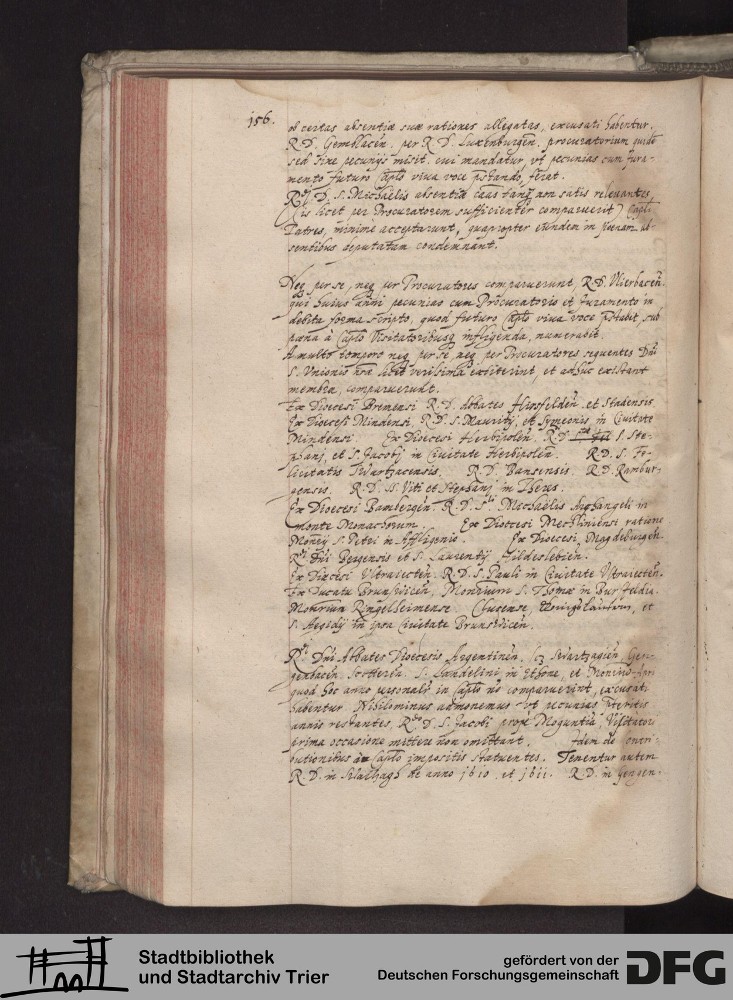 156.
ob certas absentiæ suæ rationes allegatas, excusati habentur.
R.D. Gemblacen. per R.D. Luxenburgen. procuratorium quidē
sed sine pecunijs misit. cui mandatur, vt pecunias cum Jura-
mento futuro Caplo viua voce pstando, ferat.
D. S. Michaelis absentiæ caās tanq non satis releuantes
(is licet per Procuratorem sufficienter comparuerit) Capli
Patres, minimè acceptarunt, quapropter eundem in poenam ab-
sentibus deputatam condemnant.
Neq per se, neq per Procuratores comparuerunt, R.D. Vlierbacen.
qui huius anni pecunias cum Procuratorio et Juramento in
debita forma scripto, quod futuro Caplo viua voce pstabit, sub
pæna à Caplo Visitatoribusq infligenda, numerabit.
A multo tempore neq per se, neq per Procuratores sequentes Dni
S. Vnionis nræ licet extiterint, et adhuc existant
membra, comparuerunt.
Ex Dioecesi Bremensi R.D. Abbates Hirsfelden. et Stadensis
Ex Dioecesi Mindensi. R.D. S. Mauritij, et Symeonis in Ciuitate
Mindensi. Ex Dioecesi Herbipolen. R.D. S. Ste-
phanj, et S. Jacobj in Ciuitate Herbipolen. R.D. S. Fe-
licitatis Swartzacensis. R.D. Bansensis. R.D. Kambur-
gensis. R.D. SS. Viti et Stephanj in Theres.
Ex Dioecesi Bambergen. R.D. S. Michaelis Archangeli in
monte Monachorum. Ex Dioecesi Mechliniensi ratione
Monrij S. Petri in Affligenio. Ex Dioecesi Magdeburgen.
Dni Bergensis et S. Laurentij Hildeslebien.
Ex Diœcesi Vltraiecten. R.D. S. Pauli in Ciuitate Vltraiecten.
Ex Ducatu Brunsvicen. Monrium S. Thomæ in Bursfeldia.
Ringelheimense. Clusense, et
S. Aegidij in ipsa Ciuitate Brunsvicen.
Dni Abbates Dioecesis Argentinen. Swartzagien.
genbacen. S. Landelini in Ethone, et
quod hoc anno personalr in Caplo nō comparuerint, excusati
habentur. Nihilominus admonemus vt pecunias pteritis
annis restantes, D. S. Jacobj propè Moguntiā Visitatori
prima occasione mittere non omittant. Idem de contri-
butionibus à Caplo impositis statuentes. Tenentur autem
R.D. in de anno 1610 et 1611. R.D. in Gengen-
Stadtbibliothek
und Stadtarchiv Trier
gefördert von der
Deutschen Forschungsgemeinschaft
DFG